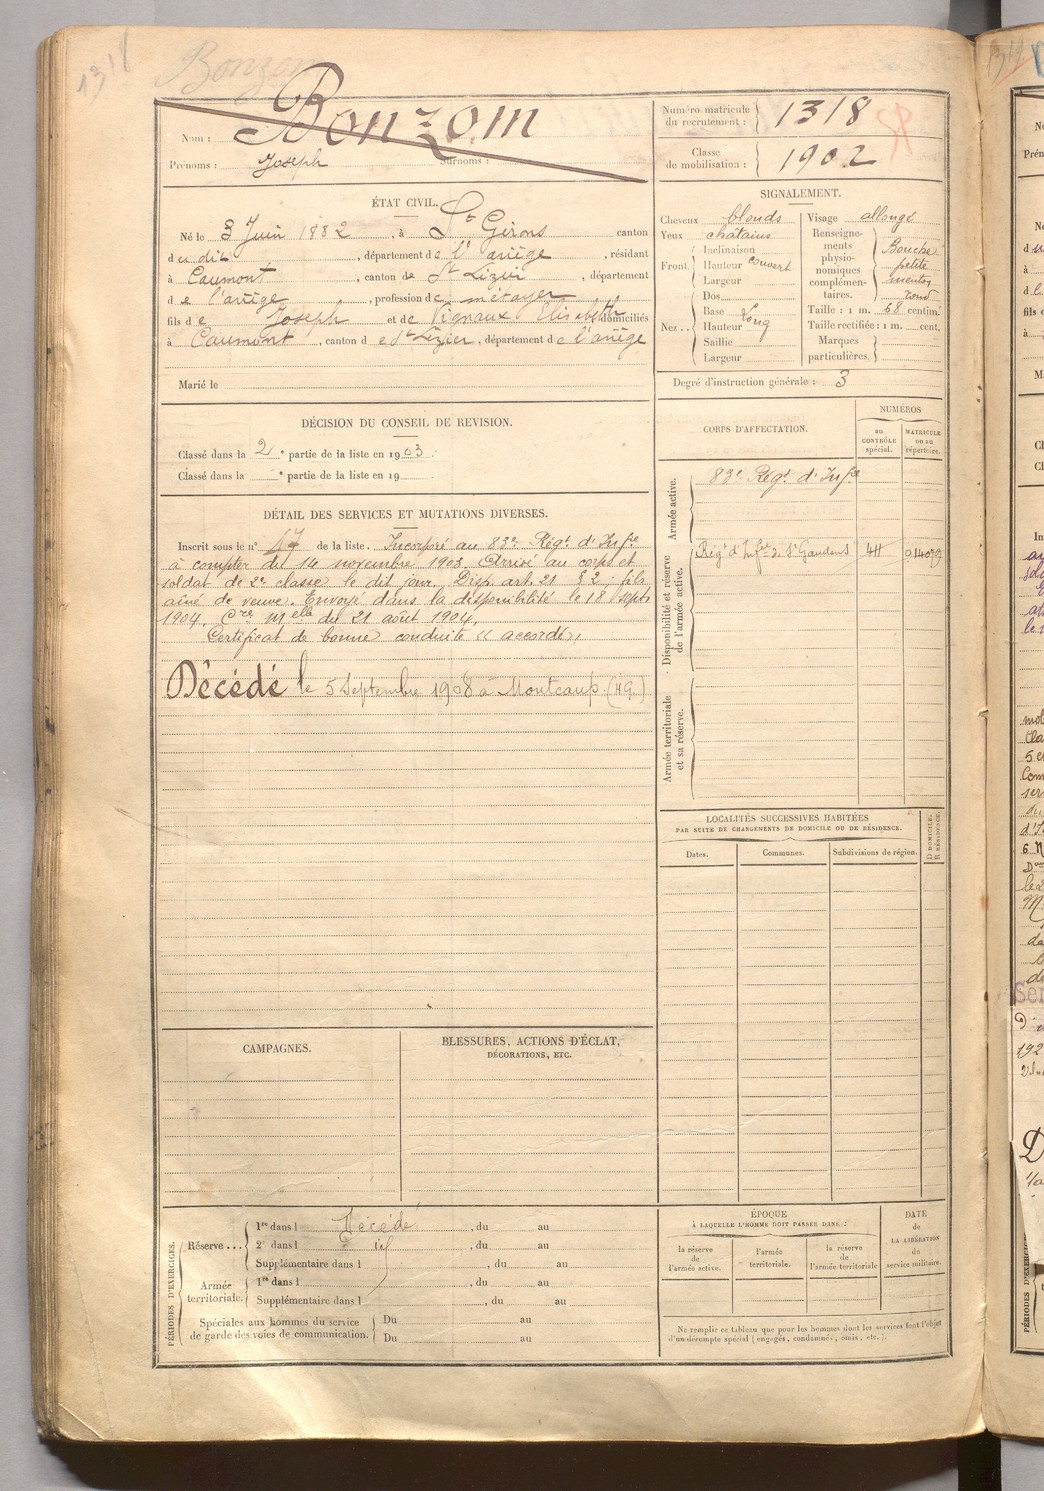 1318
Bonzom
Nom : Bonzom
Prénoms : Joseph Surnoms :
Numéro matricule du recrutement : 1318
Classe de mobilisation : 1902
ÉTAT CIVIL.
Né le 3 Juin 1882, à St Girons canton
du dit, département de l'ariège, résidant
à Caumont, canton de St Lizier, département
de l'ariège, profession de métayer
fils de Joseph et de Vignaux Elisabeth domiciliés
à Caumont, canton de St Lizier, département de l'ariège
Marié le
SIGNALEMENT.
Cheveux blonds
Yeux chatains
Front. Inclinaison
Hauteur couvert
Largeur
Nez.. Dos
Base Long
Hauteur
Saillie
Largeur
Visage allongé
Renseignements physionomiques complémentaires. Bouche petite menton rond
Taille : 1 m. 68 centim.
Taille rectifiée : 1 m. cent.
Marques particulières.
Degré d'instruction générale : 3
DÉCISION DU CONSEIL DE REVISION.
Classé dans la 2e partie de la liste en 1903.
Classé dans la e partie de la liste en 19
DÉTAIL DES SERVICES ET MUTATIONS DIVERSES.
Inscrit sous le n° 47 de la liste. Incorporé au 83e Régt d'Infie
à compter du 14 novembre 1903. Arrivé au corps et
soldat de 2e classe le dit jour. Disp. art. 21 § 2, fils
aîné de veuve. Envoyé dans la disponibilité le 18 septe
1904. Cre Melle du 21 août 1904.
Certificat de bonne conduite « accordé »
Décédé le 5 Septembre 1908 à Montcaup. (HG.)
CORPS D'AFFECTATION.
NUMÉROS
au CONTRÔLE spécial.
MATRICULE ou au répertoire.
Armée active.
83e Régt d'Infie
Disponibilité et réserve de l'armée active.
Régt d'Infie de St Gaudens
Armée territoriale et sa réserve.
LOCALITÉS SUCCESSIVES HABITÉES
PAR SUITE DE CHANGEMENTS DE DOMICILE OU DE RÉSIDENCE.
Dates.
Communes.
Subdivisions de région.
D DOMICILE. R RÉSIDENCE.
CAMPAGNES.
BLESSURES, ACTIONS D'ÉCLAT,
DÉCORATIONS, ETC.
PÉRIODES D'EXERCICES.
Réserve...
1re dans l Décédé, du au
2e dans l, du au
Supplémentaire dans l, du au
Armée territoriale.
1re dans l, du au
Supplémentaire dans l, du au
Spéciales aux hommes du service
de garde des voies de communication.
Du au
Du au
ÉPOQUE
À LAQUELLE L'HOMME DOIT PASSER DANS :
la réserve de l'armée active.
l'armée territoriale.
la réserve de l'armée territoriale
DATE de LA LIBÉRATION du service militaire.
Ne remplir ce tableau que pour les hommes dont les services font l'objet
d'un décompte spécial (engagés, condamnés, omis, etc.).